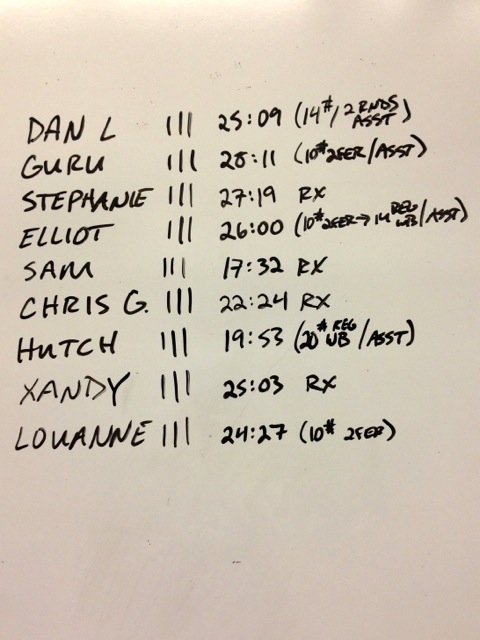 DAN L ||| 25:09 (14#/2 RNDS ASST)
GURU ||| 28:11 (10# 2FER/ASST)
STEPHANIE ||| 27:19 RX
ELLIOT ||| 26:00 (10# 2FER→14 REG WB/ASST)
SAM ||| 17:32 RX
CHRIS G. ||| 22:24 RX
HUTCH ||| 19:53 (20# REG WB/ASST)
XANDY ||| 25:03 RX
LOUANNE ||| 24:27 (10# 2FER)